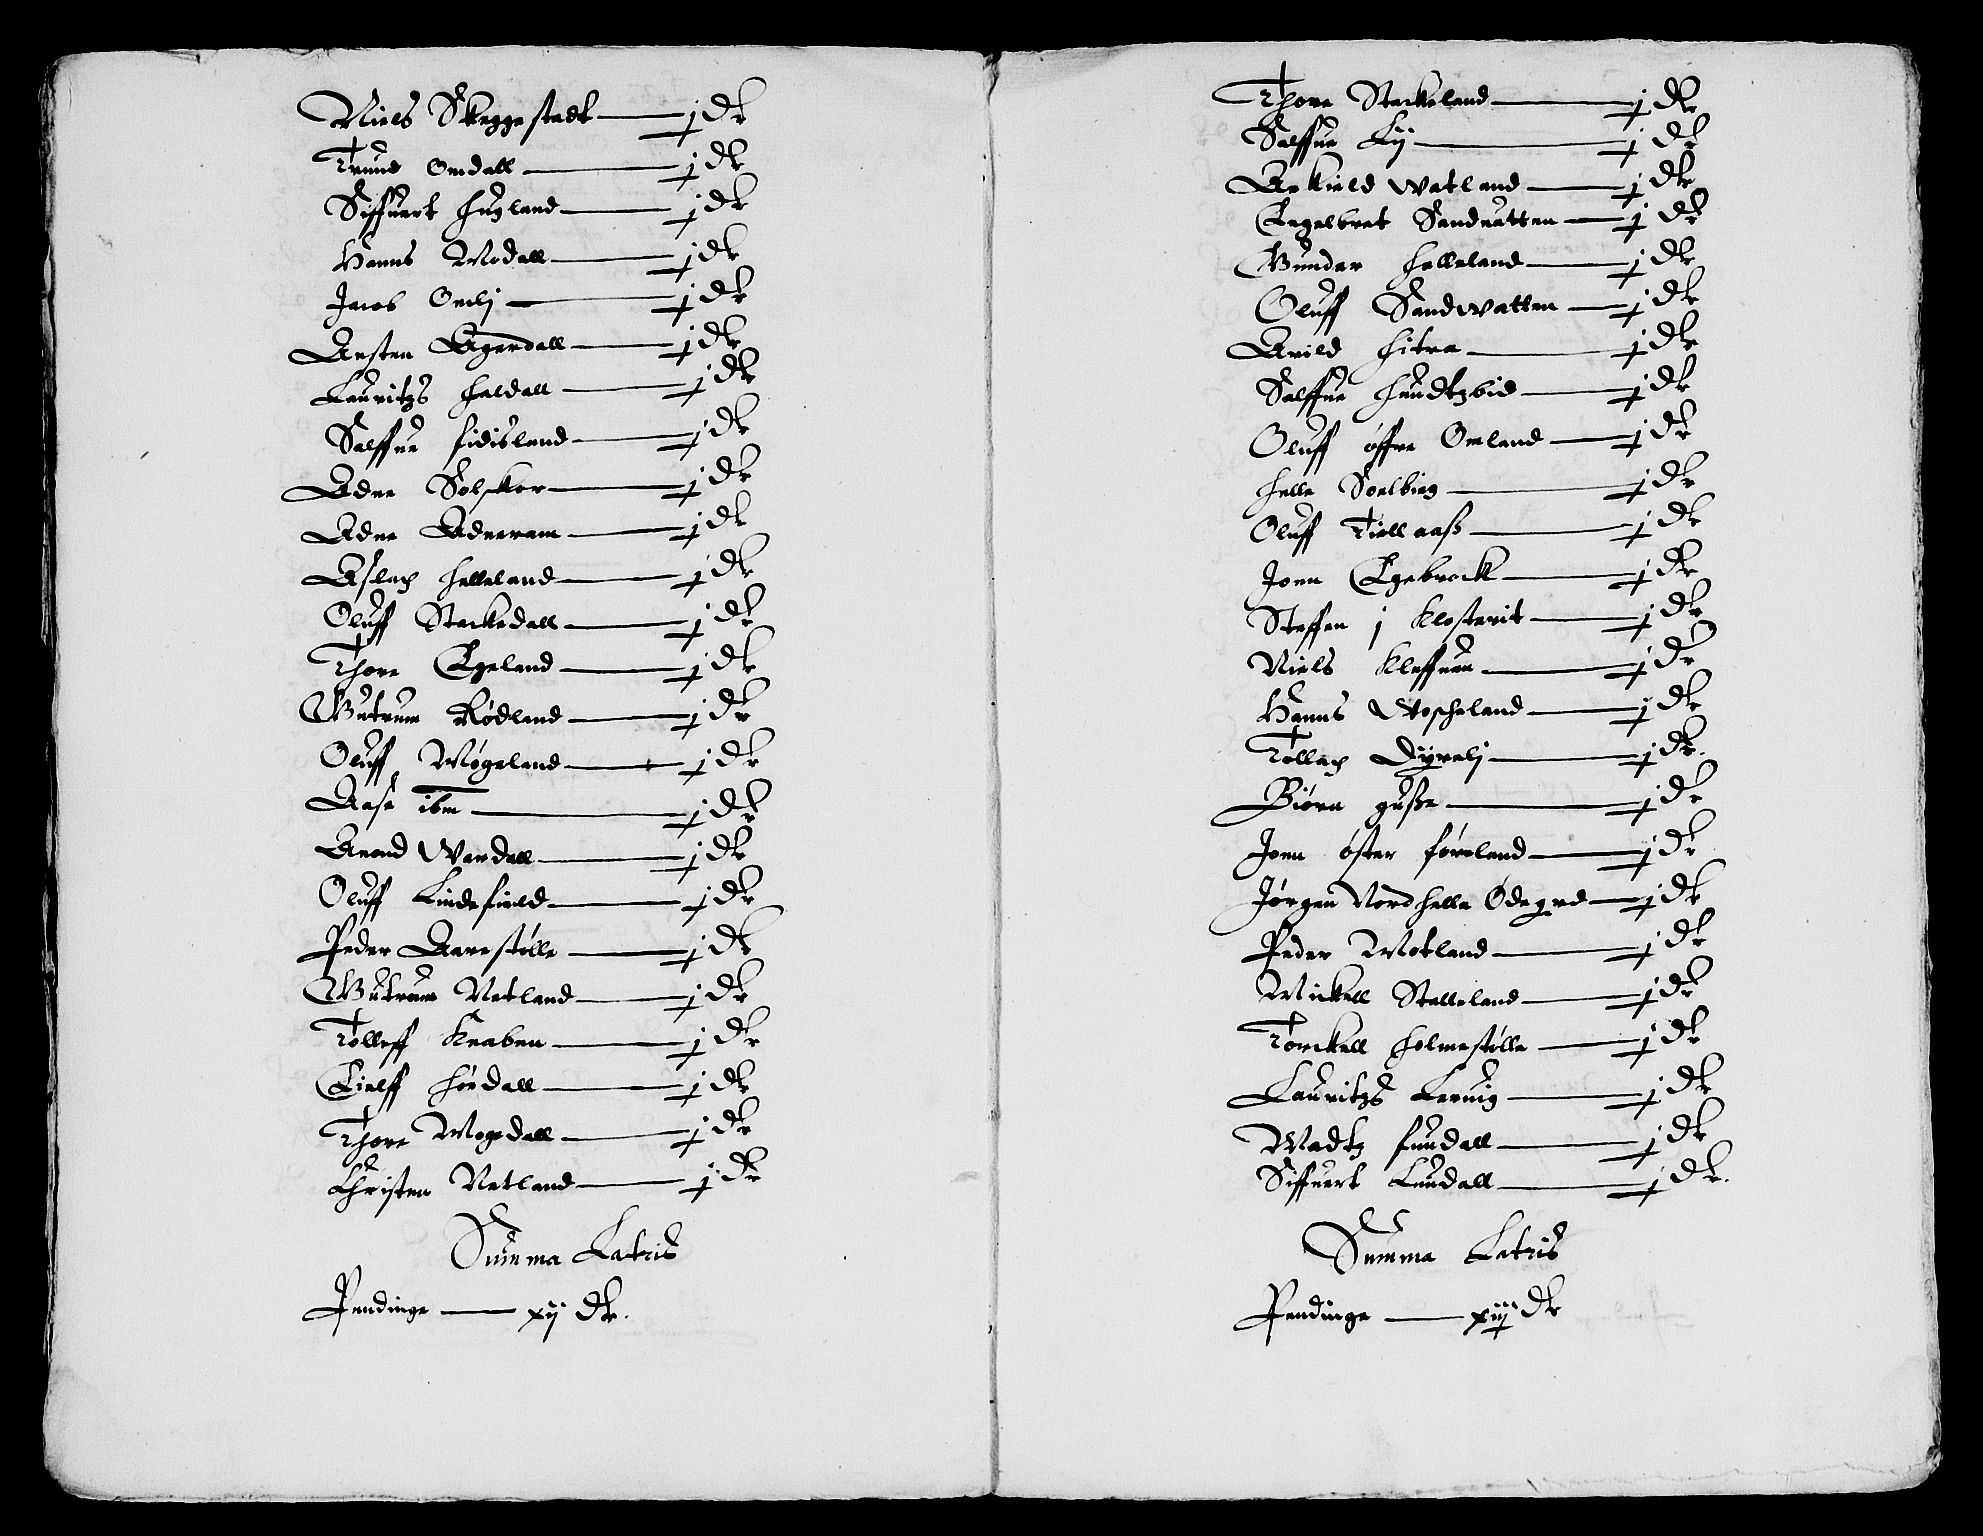 Niels Skeggestadt — j dr
Trund Omdall — j dr
Siffuert Hugland — j dr
Hanns Modall — j dr
Jacob Omlj — j dr
Aosten Egerdall — j dr
Lauritzs Haldall — j dr
Salffue Fidisland — j dr
Adne Solsker — j dr
Adne Adneram — j dr
Aslach Helleland — j dr
Oluff Stackedall — j dr
Thore Egeland — j dr
Gutrum Rødland — j dr
Oluff Møgeland — j dr
Aase ibm — j dr
Anond Wardall — j dr
Oluff Lindefield — j dr
Peder Aarestølle — j dr
Gutrum Netland — j dr
Tolleff Knaben — j dr
Eielff Hørdall — j dr
Thore Mogedall — j dr
Christen Netland — j dr
Summa Latris
Pendinge — xij dr.
Thore Stackeland — j dr
Salffue Lij — j dr
Askield Watland — j dr
Engelbret Sanduatten — j dr
Gunder Helleland — j dr
Oluff Sandwatten — j dr
Arild Hitra — j dr
Salffue Hundtzbid — j dr
Oluff øffre Omland — j dr
Helle Soelbierg — j dr
Oluff Tiellaaß — j dr
Joen Egebrock — j dr
Steffen j Klosterit — j dr
Niels Kleffuen — j dr
Hanns Woscheland — j dr
Tollach Dyrelj — j dr.
Biørn guße — j dr
Joen øster Førland — j dr
Jørgen Nordhelle Ødegrd — j dr
Peder Motland — j dr
Mickell Stalleland — j dr
Torckell Holmestølle — j dr
Lauritzs Leruig — j dr
Madtz Fundall — j dr
Siffuert Lundall — j dr.
Summa Latris
Pendinge — xiij dr